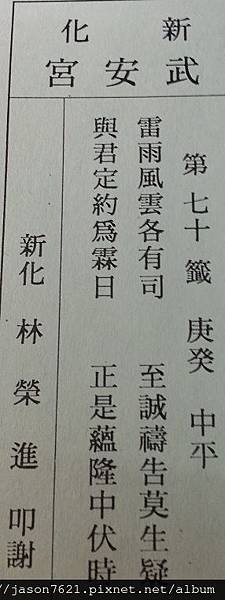 新化
武安宮
第七十籤 庚癸 中平
雷雨風雲各有司 至誠禱告莫生疑
與君定約為霖日 正是蘊隆中伏時
新化 林榮進 叩謝
//jason7621.pixnet.net/album